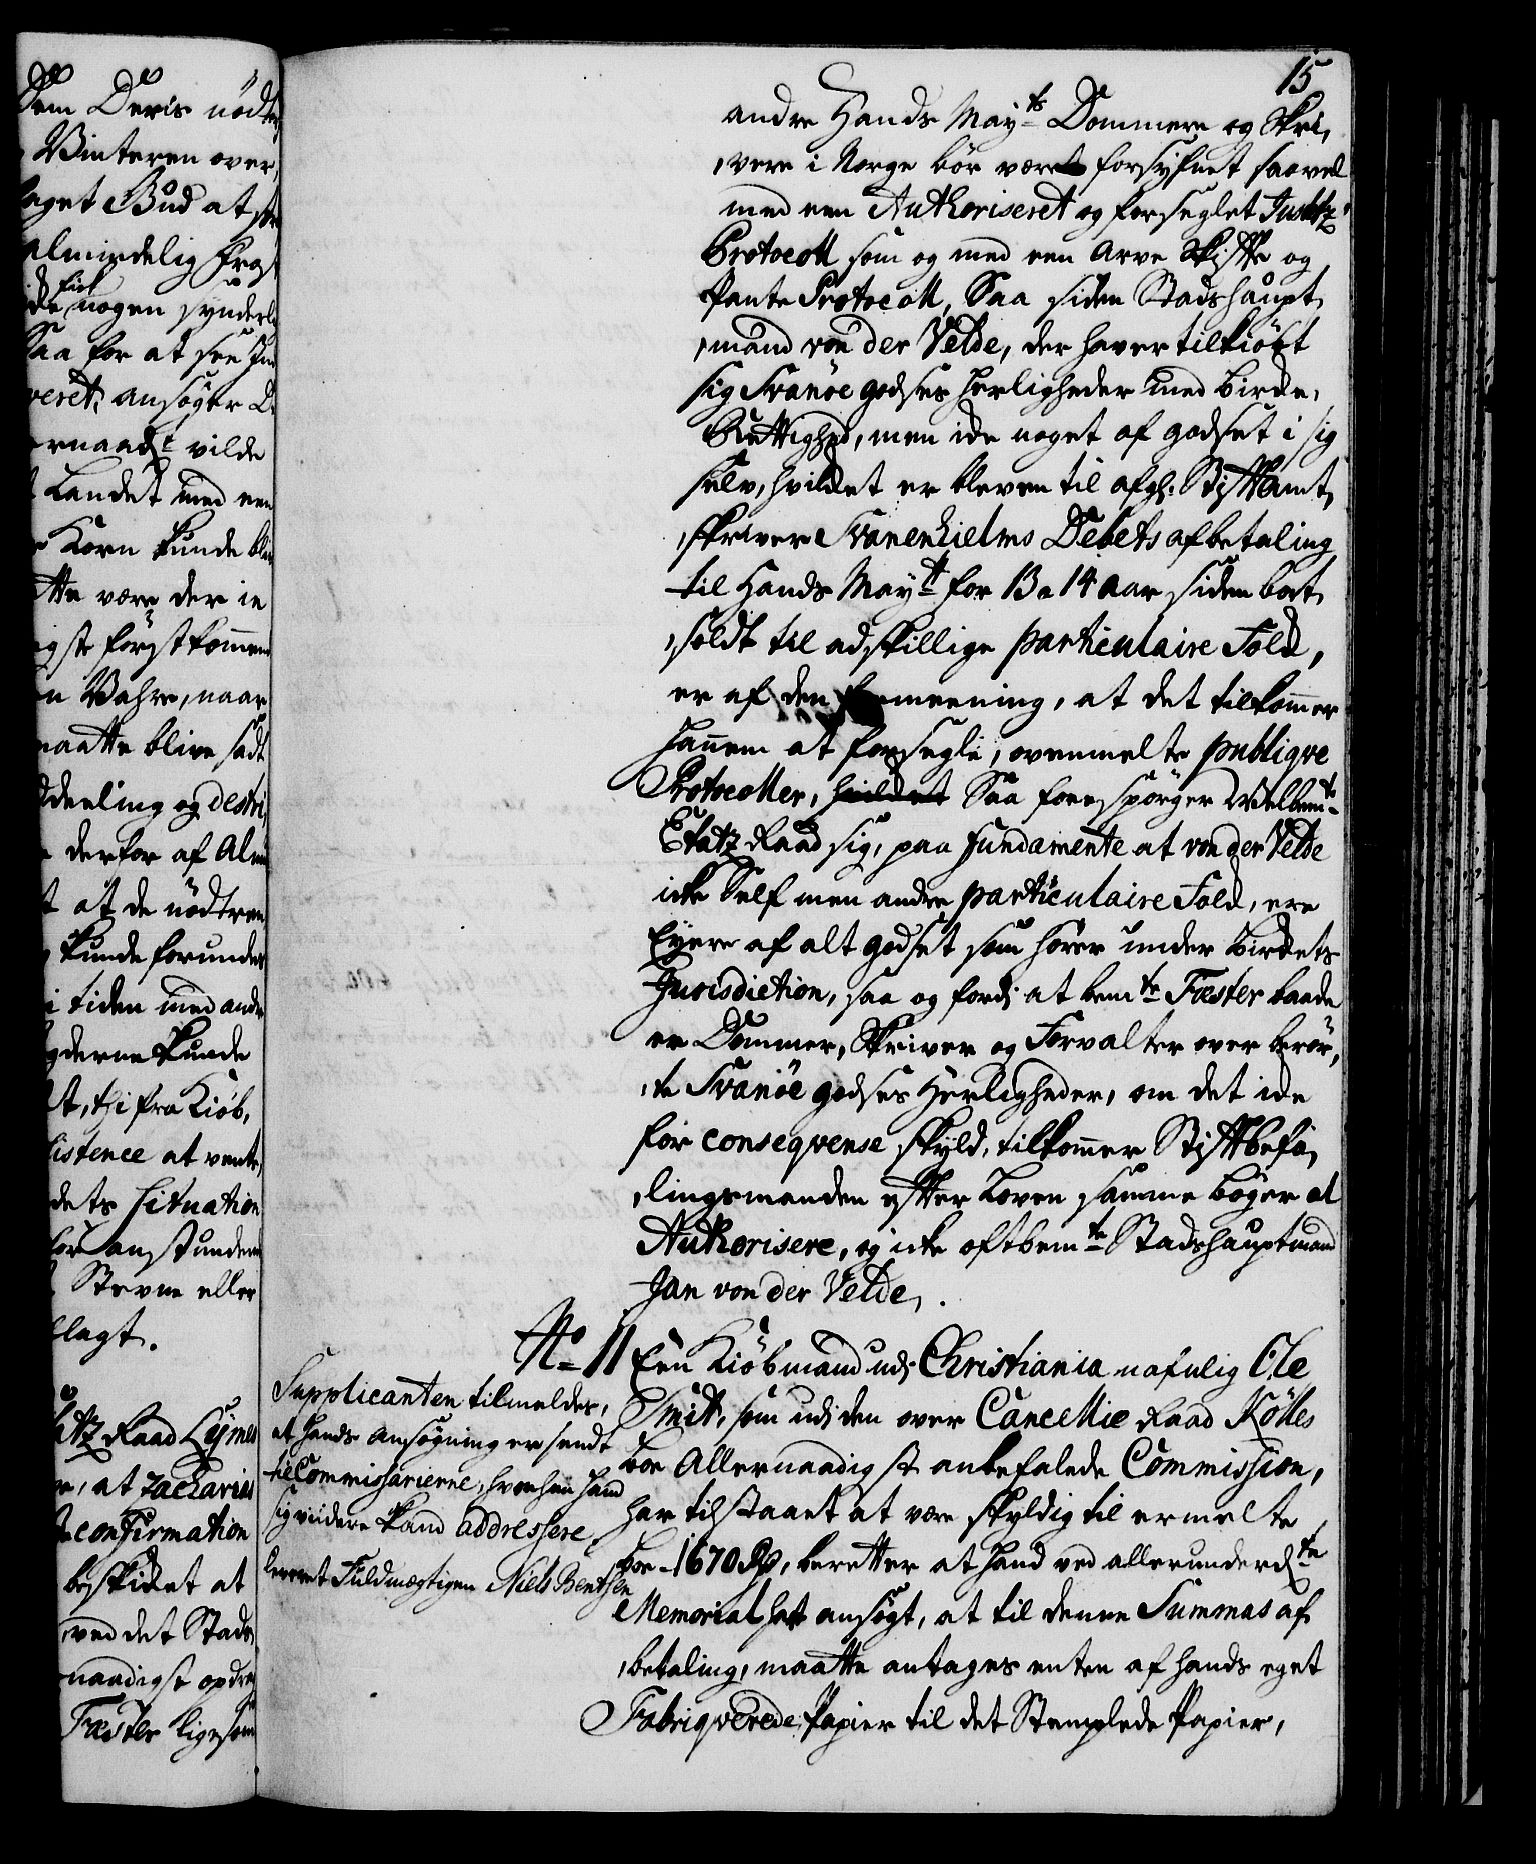 15
andre Hands May.ts Dommere og Skri,
,vere i Norge bör været forsyfnet saavel
med een Authoriseret og forseglet Justitz
Protocoll som og med een Arve Skifte og
Pante Protocoll, Saa siden Stadshaupt,
,mand von der Velde, der haver tilkiöbt
sig Svanöe godses herligheder med birke,
Rettighed, men icke noget af godset i sig
selv, hvilcket er bleven til afgl: Stiftamt,
,skriver Svanenhielms Debets afbetaling
til Hands May.t for 13 a 14 aar siden bort,
,soldt til adskillige particulaire Folck,
er af den meening, at det tilkommer
hannem at forsegle, ovenmelte publiqve
Protocoller, hvilcket Saa forespörger Velbem.te
Etatz Raad sig, paa fundamente at von der Velde
icke Self men andre particulaire Folck, ere
Eyere af alt godset som hörer under birckets
Jurisdiction, saa og fordj at bem.te Fæster baade
er Dommer, Skriver og Forvalter over berör,
,te Svanöe godses Herligheder, om det icke
for conseqvense skyld, tilkommer Stiftbefa,
,lingsmanden efter Loven samme böger at
Authorisere, og icke oftbem.te Stadshauptmand
Jan von der Velde.
No 11 Een Kiöbmand udj Christiania nafnlig Ole
Smit, som udj den over Cancellie Raad Rölles
boe Allernaadigst anbefalede Commission,
har tilstaaet at være skyldig til ermelte
boe 1670 Rd, beretter at hand ved allerunderd.te
Memorial haft ansögt, at til denne Summas af,
,betaling, maatte antages enten af hands eget
Fabriqverede Papier til det Stemplede Papier,
Supplicanten tilmeldes,
at hands ansögning er sendt
til Commissarierne, hvorhen hand
sig viidere kand addressere
leveret Fuldmegtigen Niels Bentsen
Dem Deris nödt
Winteren over,
aget Bud at
almindelig Frag
fick
nogen synderl
Saa for at see
veret, ansöger
ernaad.t vilde
Landet med een
Korn kunde bli
tte være der in
igst först kommen
n Vahre, naar
maatte blive sadt
ddeeling og destri,
derfor af Alm
t at de nödtren
kunde forunder
i tiden med and
gderne kunde
t, thi fra Kiöb,
sistence at vente,
dets situation
anstunden
Stevne eller
lagt.
tz Raad
, at Zacharias
confirmation
beskicket at
ved det Stads
naadigst opdra
Fæster ligesom